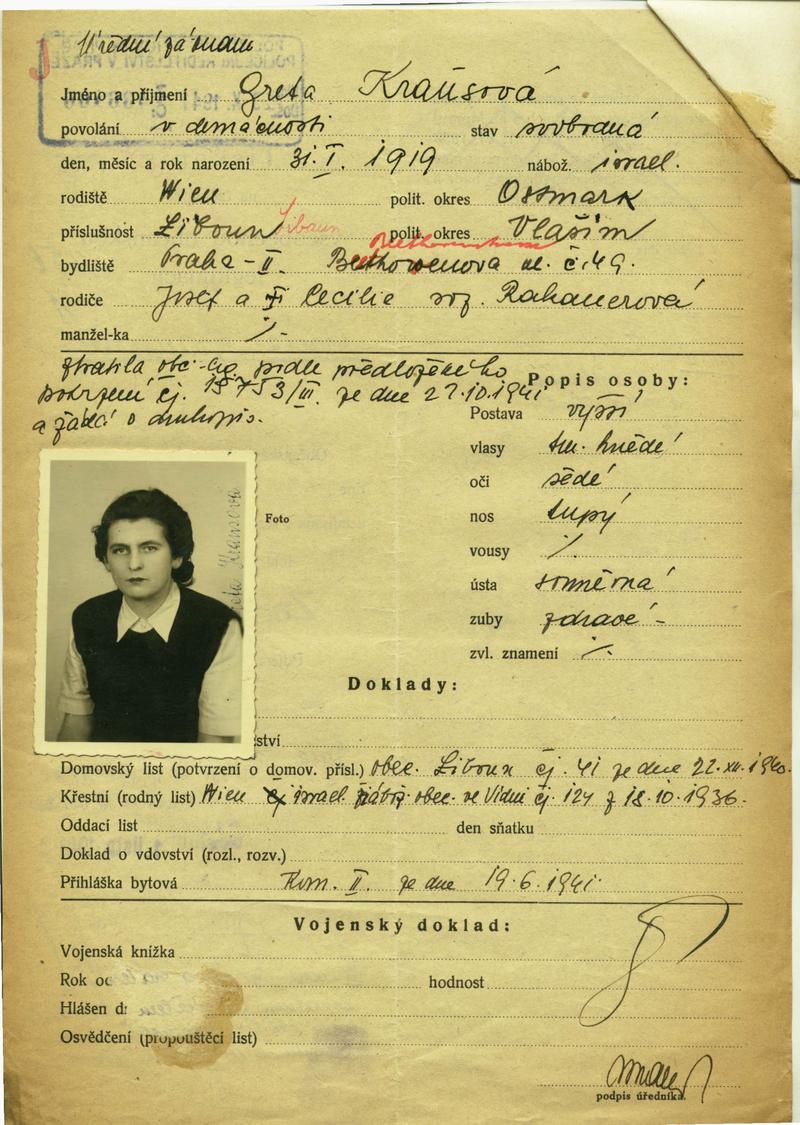 Úřední záznam
Jméno a příjmení Greta Krausová
povolání v domácnosti stav svobodná
den, měsíc a rok narození 31. I. 1919 nábož. israel.
rodiště Wien polit. okres Ostmark
příslušnost Liboun Libaun polit. okres Vlašim
bydliště Praha - II. Beethowenova ul. č. 49.
rodiče Josef a Cecilie roz.
manžel-ka ./.
ztratila obč. leg. podle předloženého
potvrzení čj. 15753/III. ze dne 27.10.1941
a žádá o druhopis.
Popis osoby:
Postava vyšší
vlasy tm. hnědé
oči šedé
Foto
nos tupý
vousy ./.
ústa souměrná
zuby zdravé -
zvl. znamení ./.
Greta Krausová
Doklady:
ství
Domovský list (potvrzení o domov. přísl.) obec. Liboun čj. 41 ze dne 22. XII. 1940.
Křestní (rodný list) Wien israel. nábož. obec. ve Vídni čj. 124 z 18.10.1936.
Oddací list den sňatku
Doklad o vdovství (rozl., rozv.)
Přihláška bytová Kom. II. ze dne 19.6.1941
Vojenský doklad:
Vojenská knížka
Rok hodnost
Hlášen
Osvědčení (propouštěcí list)
podpis úředníka.